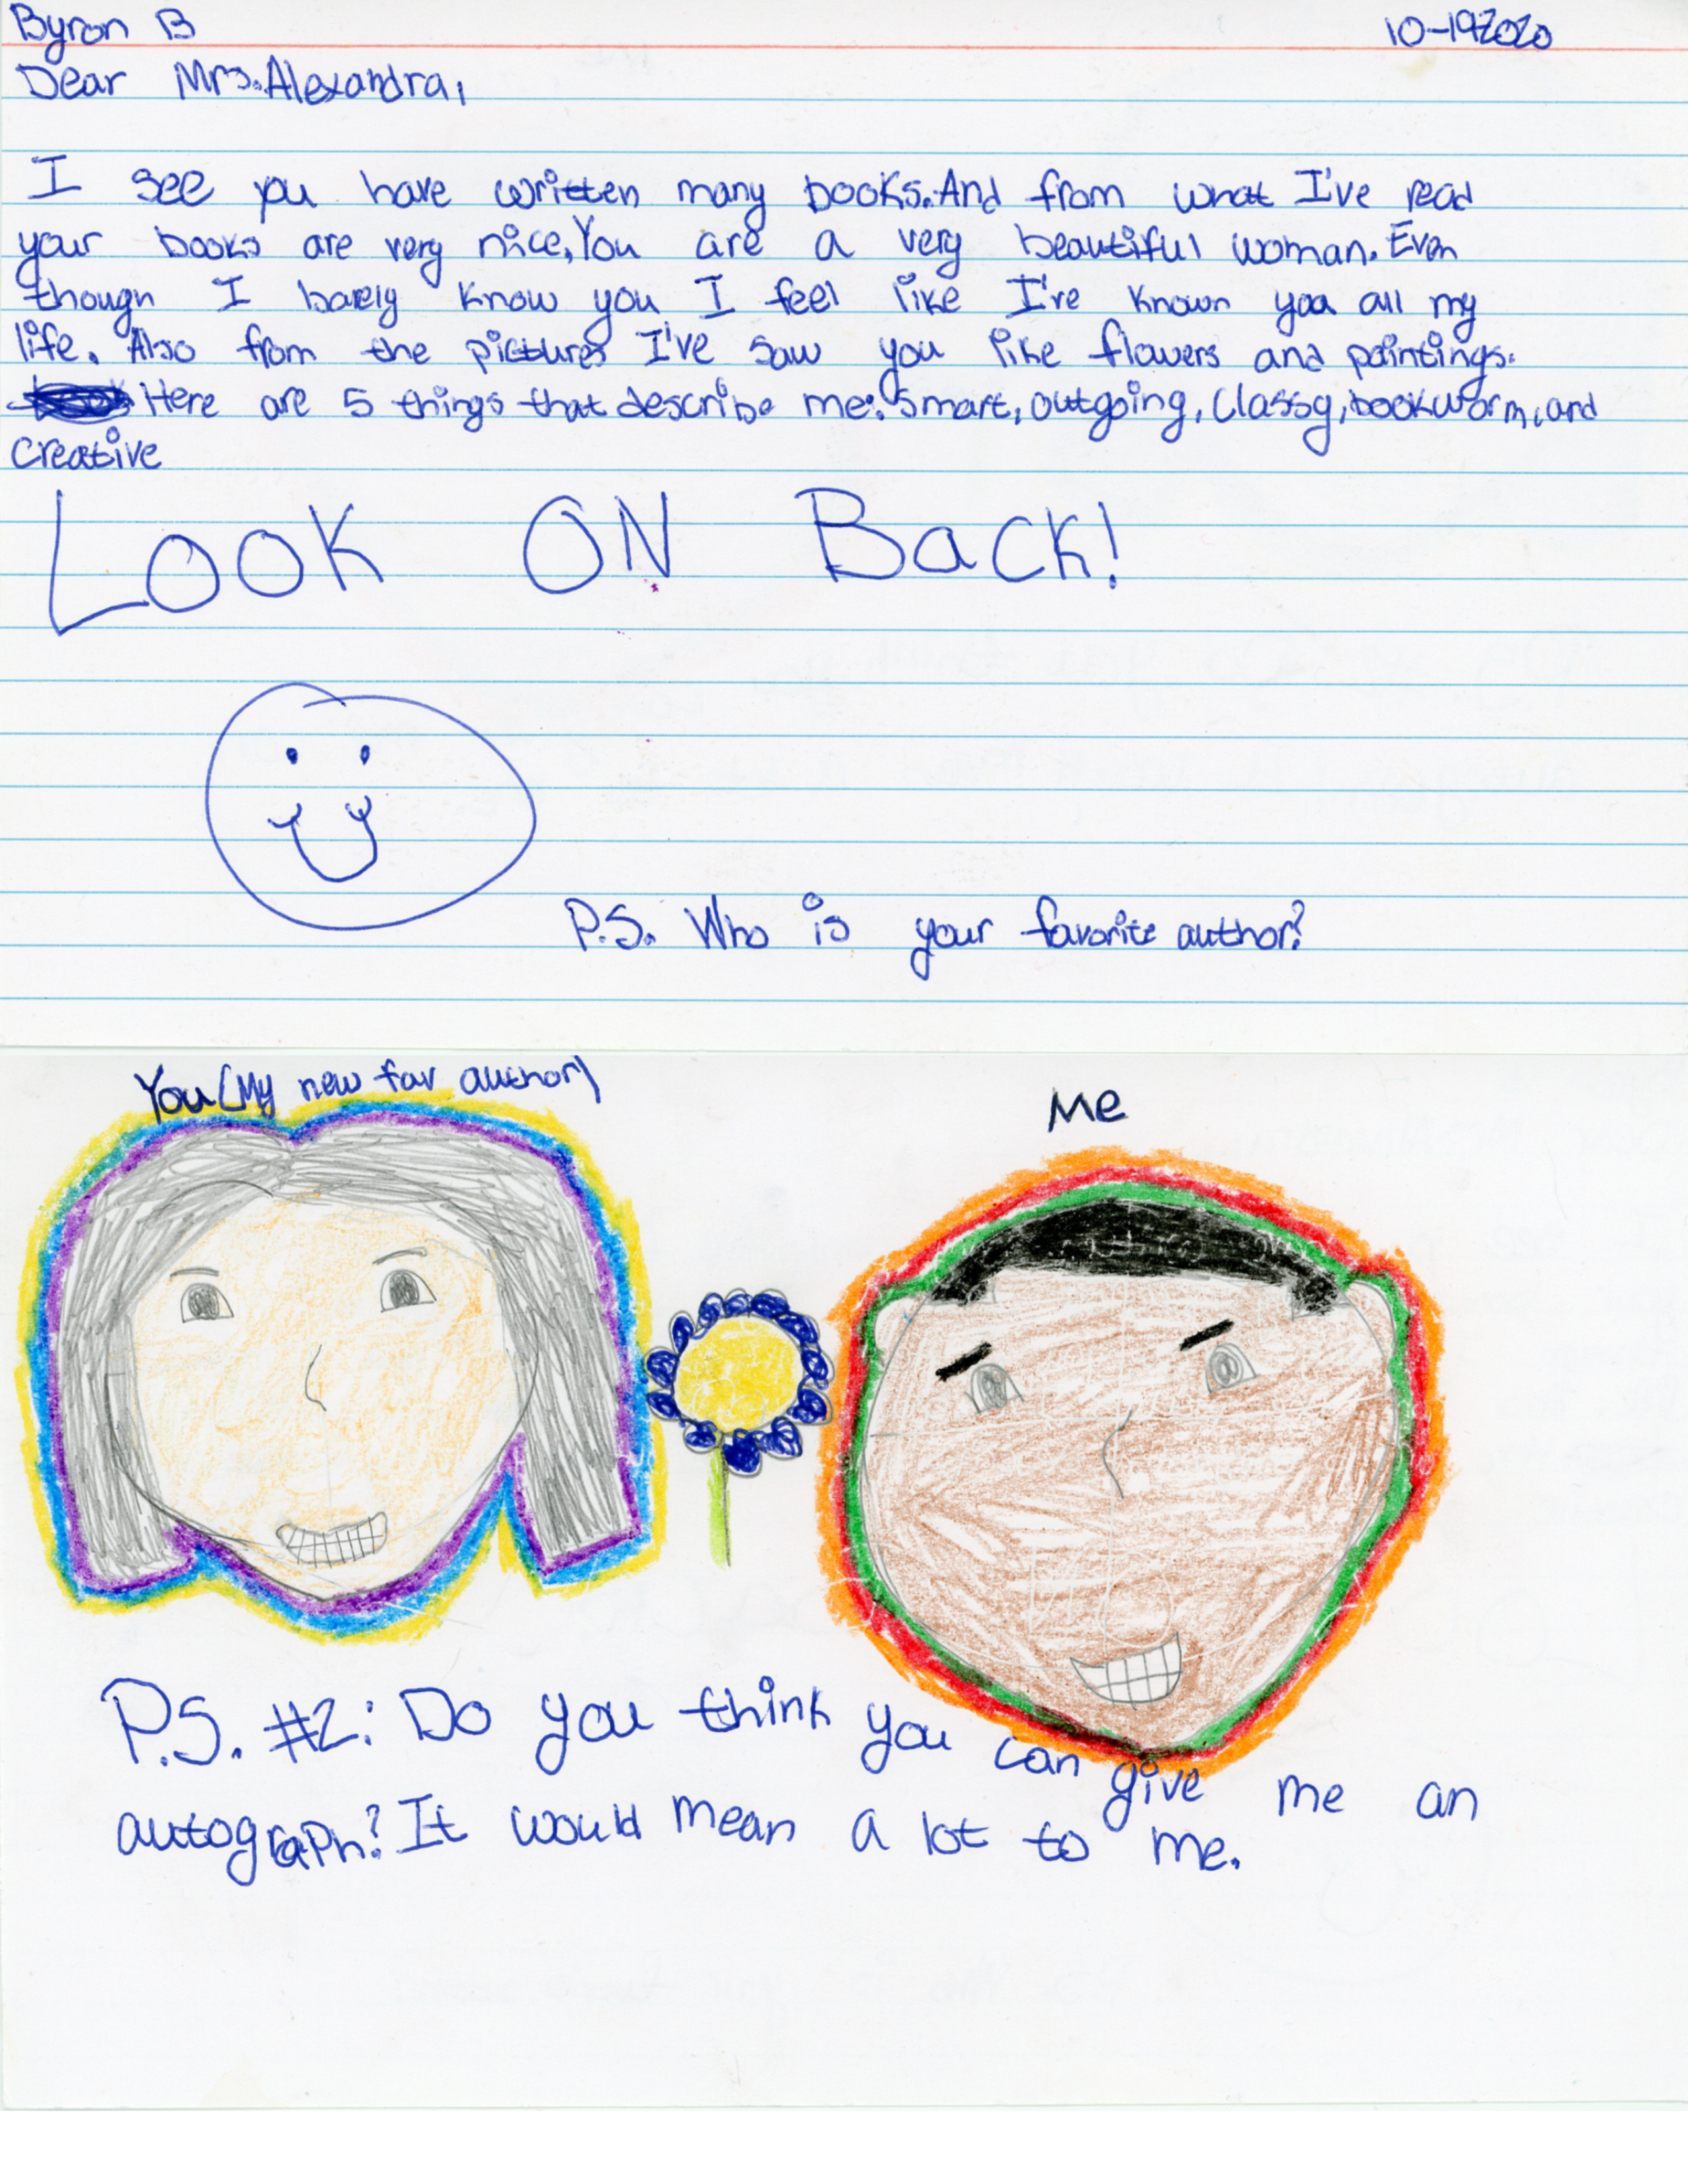 Byron B
10-192020
Dear Mrs. Alexandra,
I see you have written many books. And from what I've read
your books are very nice, You are a very beautiful woman. Even
though I barely know you I feel like I've known you all my
life. Also from the pictures I've saw you like flowers and paintings.
Here are 5 things that describe me: Smart, outgoing, Classy, bookworm, and
Creative
LOOK ON BacK!
P.S. Who is your favorite author?
You (My new fav author)
Me
P.S. #2: Do you think you can give me an
autograPh? It would mean a lot to me.